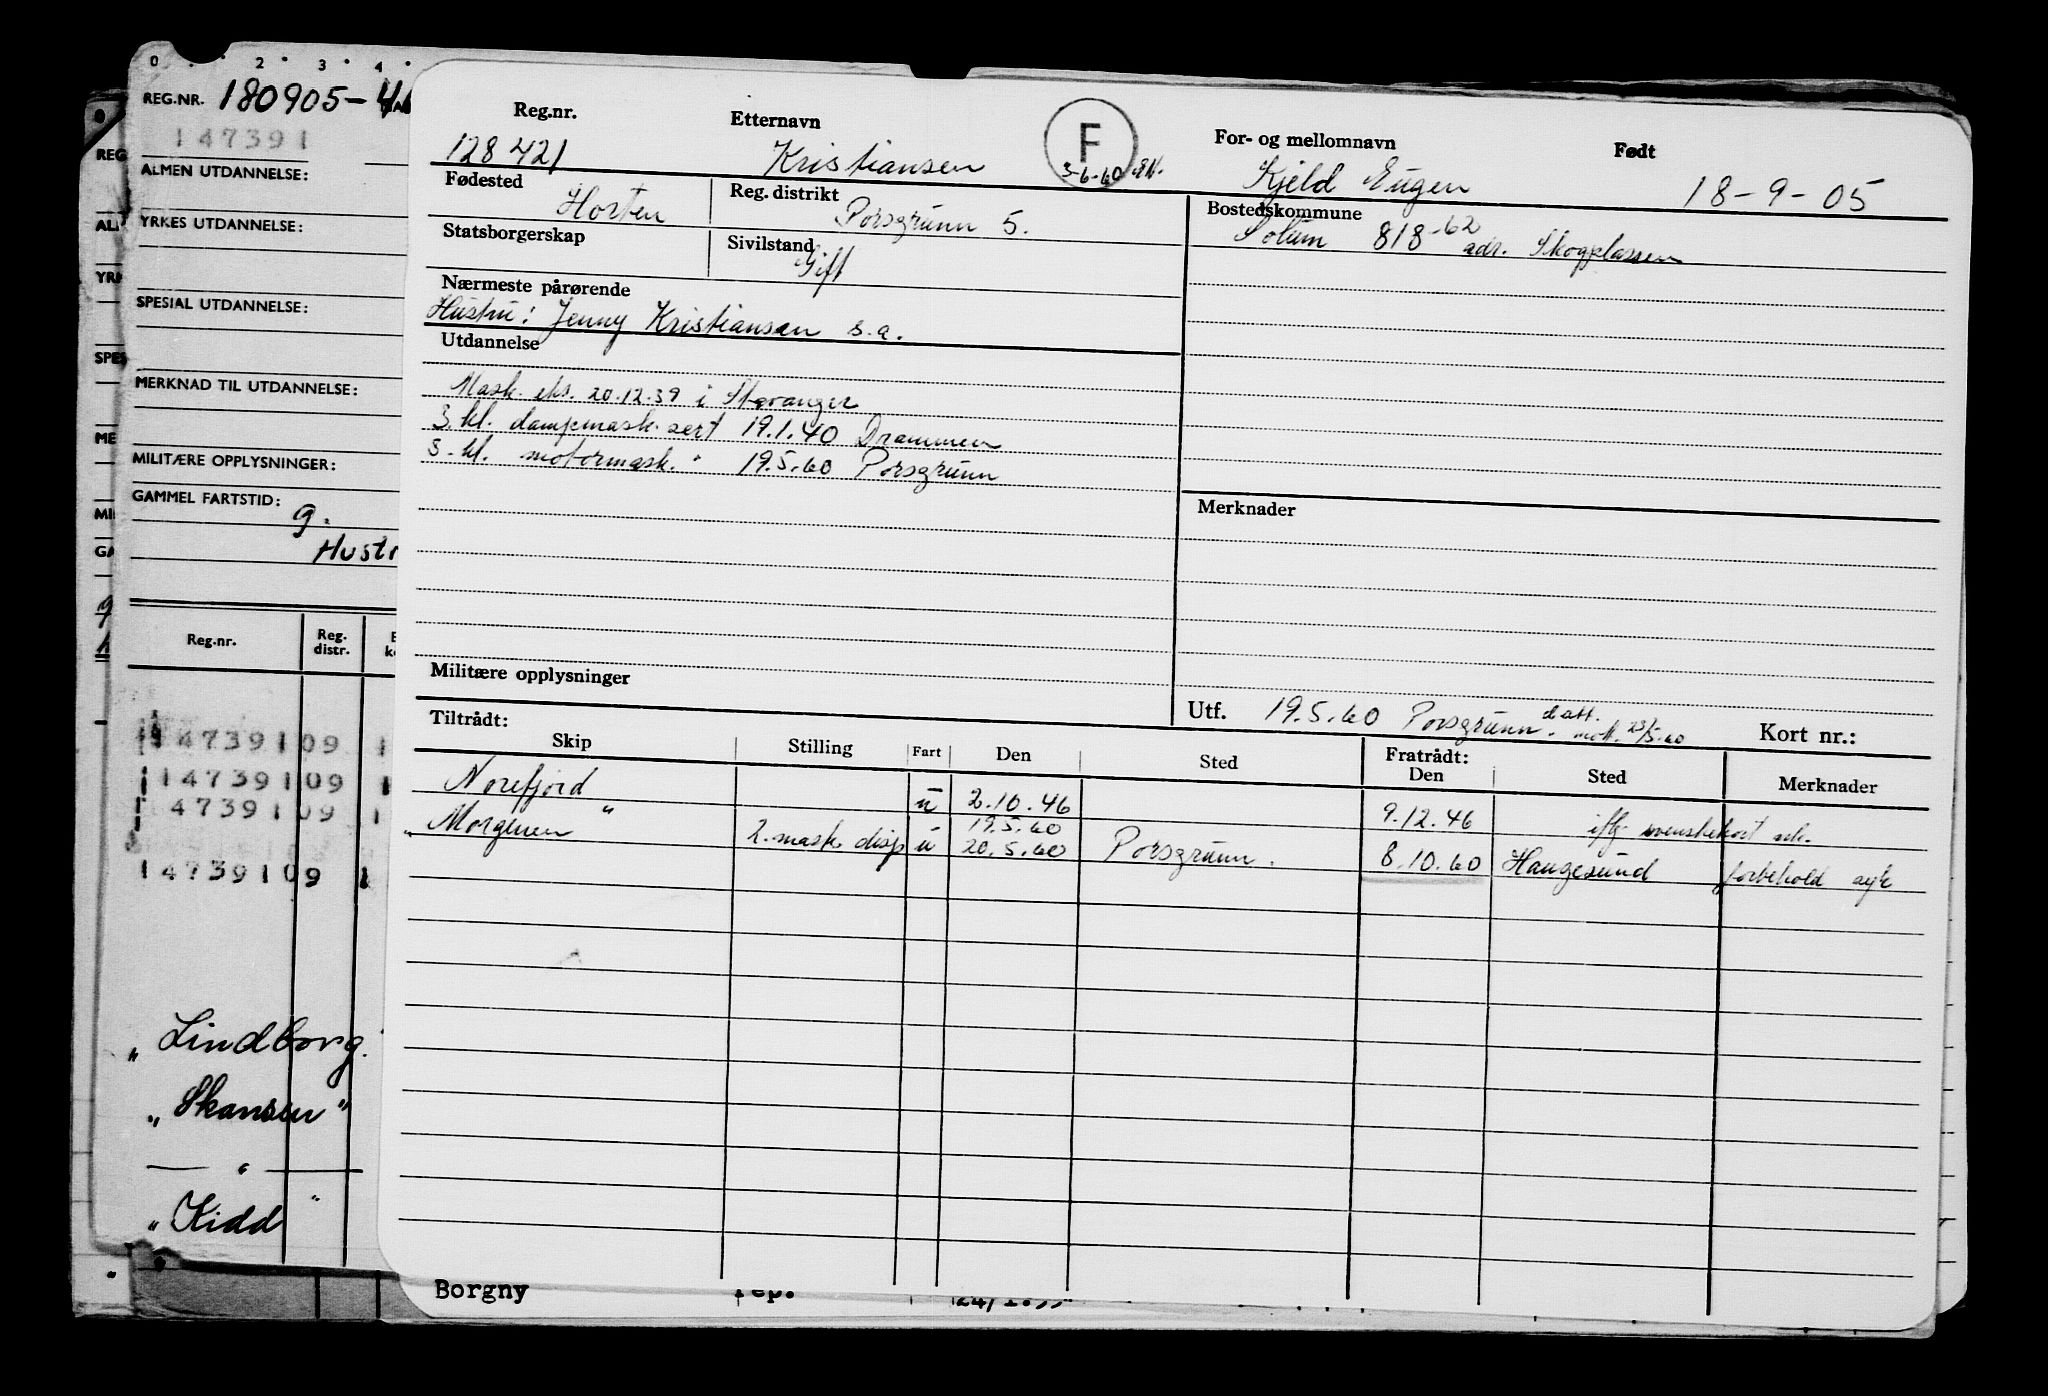 0 2 3 4
REG.NR. 180905-4
147391
ALMEN UTDANNELSE:
YRKES UTDANNELSE:
SPESIAL UTDANNELSE:
MERKNAD TIL UTDANNELSE:
MILITÆRE OPPLYSNINGER:
GAMMEL FARTSTID:
g.
Hustr
Reg.nr. Reg. distr.
14739109
14739109
4739109
14739109
"Lindborg."
"Skansen"
— " —
"Kidd"
REG
ALI
YRK
SPES
ME
MI
GA
Reg.nr. Etternavn F For- og mellomnavn Født
128421 Kristiansen 3-6-60 Kjeld Eugen 18-9-05
Fødested Horten Reg. distrikt Porsgrunn 5. Bostedskommune
Solum 818-62 adr. Skogplassen
Statsborgerskap Sivilstand Gift
Nærmeste pårørende
Hustru: Jenny Kristiansen s.a.
Utdannelse
Mask. eks. 20.12.39 i Stavanger
3. kl. dampmask. sert 19.1.40 Drammen
3. kl. motormask. " 19.5.60 Porsgrunn
Merknader
Militære opplysninger
Utf. 19.5.60 Porsgrunn. d att. mott. 23/5-60 Kort nr.:
Tiltrådt: Fratrådt:
Skip Stilling Fart Den Sted Den Sted Merknader
Norefjord u 2.10.46 9.12.46 iflg.
"Morgenen" 2. mask. disp u 19.5.60 20.5.60 Porsgrunn. 8.10.60 Haugesund forbehold syk
Borgny rep.